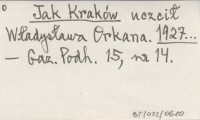 Jak Kraków uczcił
Władysława Orkana. 1927...
— Gaz. Podh. 15, na 14.
BJ/072/0610